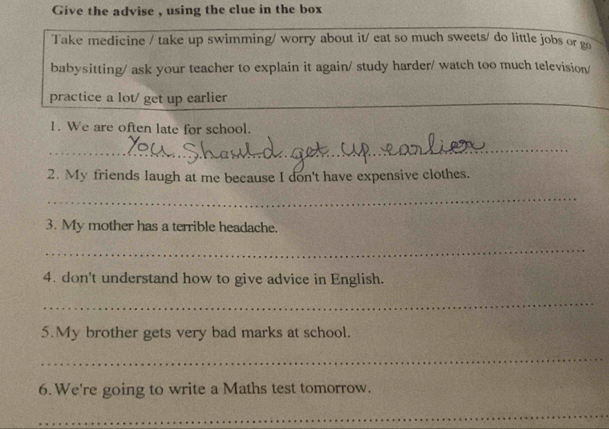 Give the advise , using the clue in the box
Take medicine / take up swimming/ worry about it/ eat so much sweets/ do little jobs or go
babysitting/ ask your teacher to explain it again/ study harder/ watch too much television/
practice a lot/ get up earlier
1. We are often late for school.
You should get up earlier
2. My friends laugh at me because I don't have expensive clothes.
3. My mother has a terrible headache.
4. don't understand how to give advice in English.
5.My brother gets very bad marks at school.
6.We're going to write a Maths test tomorrow.